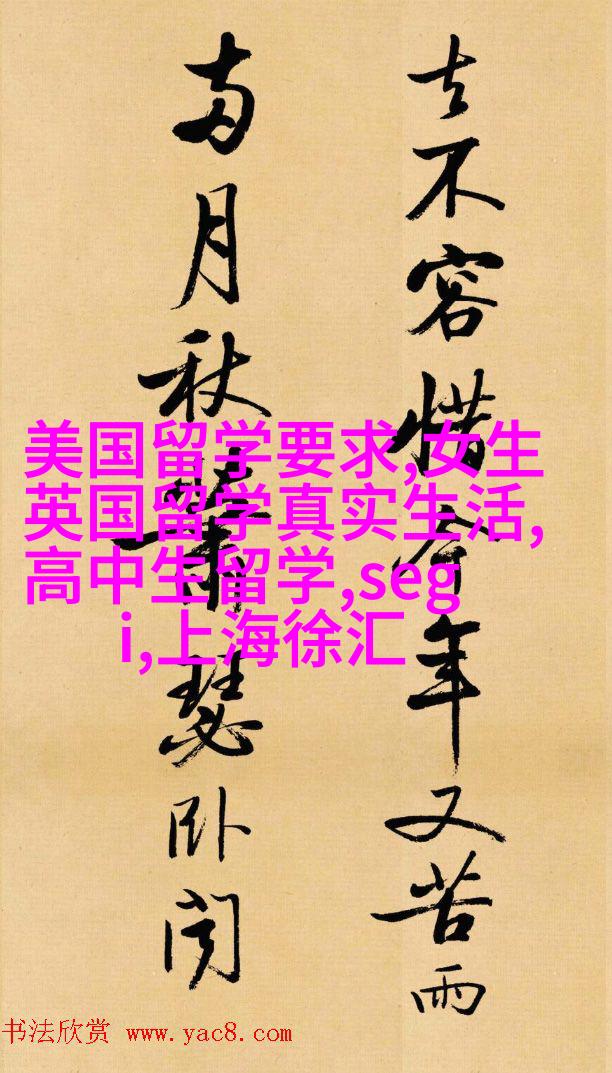 去不容惜今年又苦雨
兩月秋蕭瑟卧聞
美国留学要求,女生
英国留学真实生活,
高中生留学,seg
i,上海徐汇
书法欣赏 www.yac8.com